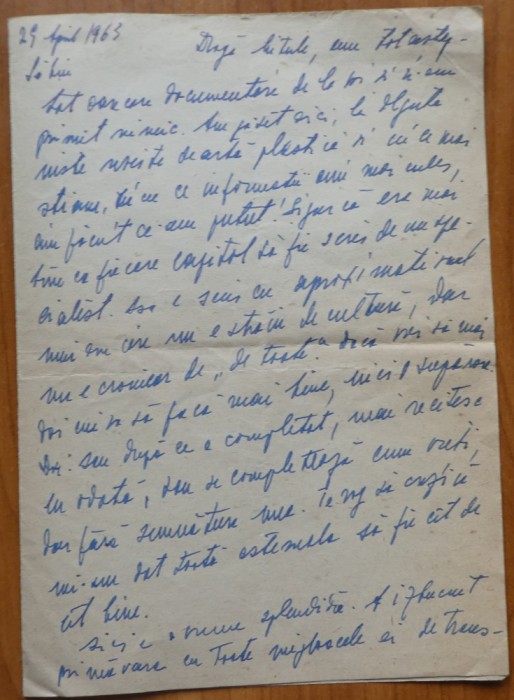 29 April 1963
Sibiu
Dragă        , am tot aștep-
tat oarecare documentări de la voi și n-am
primit nimic. Am găsit aici, la
niște reviste de artă plastică și cu ce mai
știam,     cu ce informații am mai cules,
am făcut ce am putut! Sigur că era mai
bine ca fiecare capitol să fie scris de un spe-
cialist.     e scris cu aproximația unui
om care nu e străin de cultură, dar
nu e cronicar de „de toate". Dacă vrei să mai
dai         să facă mai bine, nici o supărare.
    sau după ce a completat, mai recitesc
eu odată, sau se completează cum vreți,
dar fără semnătura mea. Te rog să crezi că
mi-am dat toată osteneala să fie cît de
cît bine.
Aici e o vreme splendidă. A izbucnit
primăvara cu toate mijloacele ei de trans-